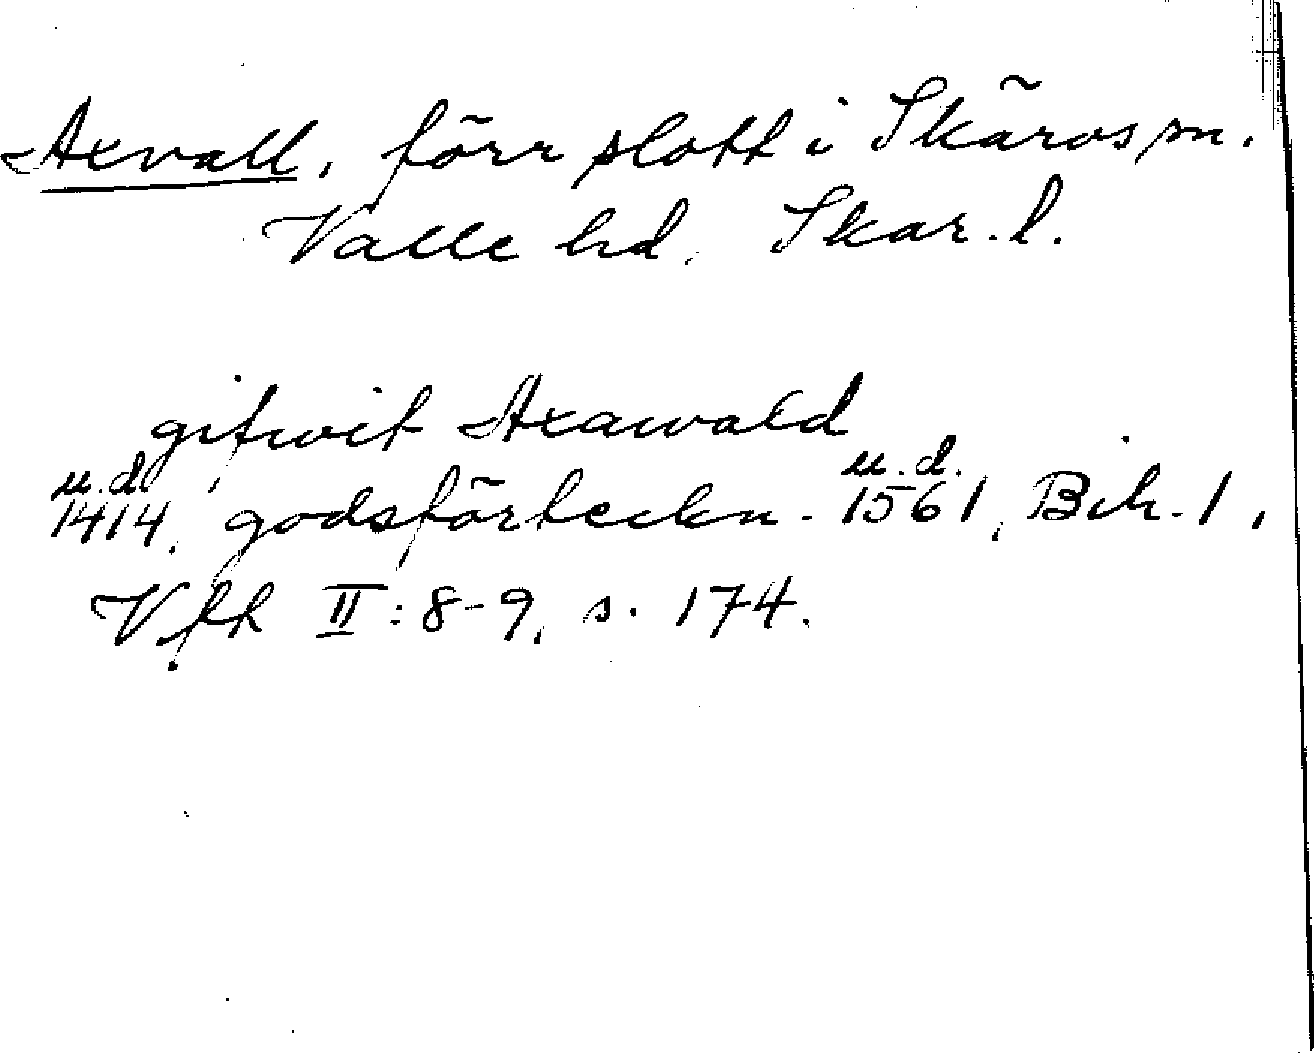 Axvall, förr slott i Skärvs sn.
Valle hd. Skar. l.
gifwit Axawald
u.d.
u.d.
1414, godsförteckn. 1561, Bih. 1,
Vfh II: 8-9, s. 174.